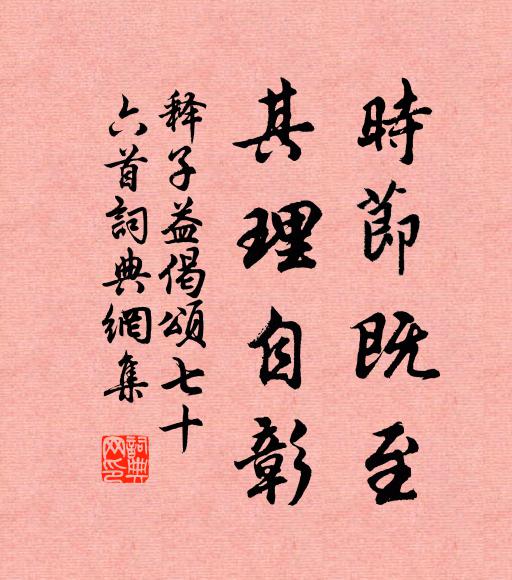 時節既至
其理自彰
释子益偈頌七十
六首詞典網集
詞典
网印